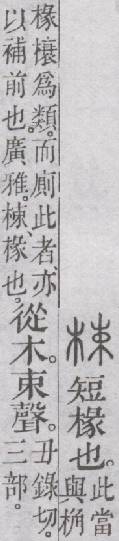 梀 短椽也。此當
與桷
椽榱爲類。而廁此者、亦
以補前也。廣雅。梀、椽也。
從木。束聲。丑錄切。
三部。